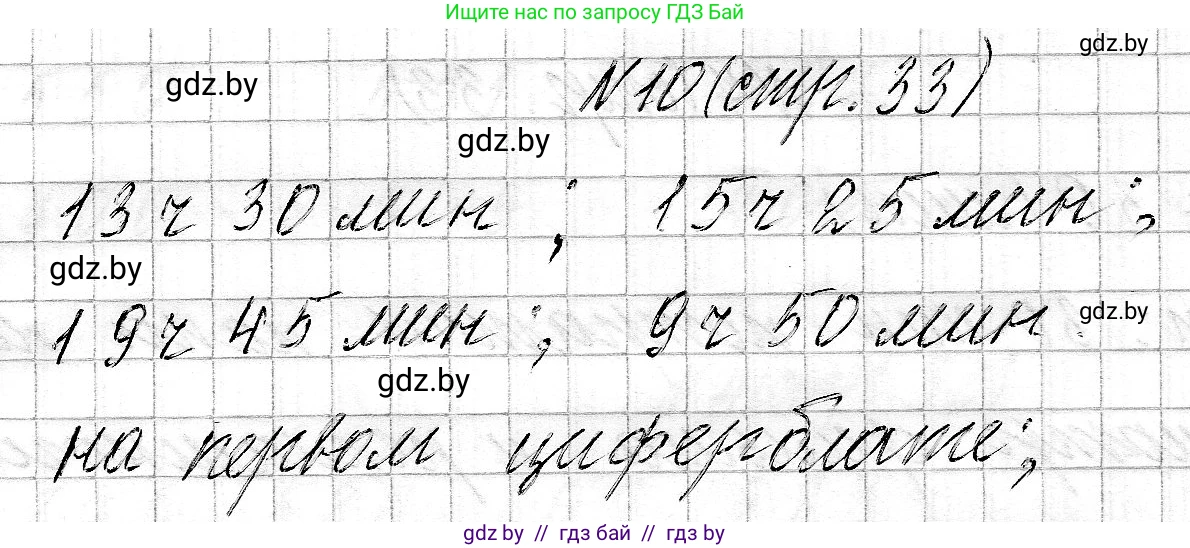 Ищите нас по запросу ГДЗ Бай
gdz.by
gdz.by
N 10 (стр. 33)
gdz.by
13 ч 30 мин ; 15 ч 25 мин ;
gdz.by
19 ч 45 мин ; 9 ч 50 мин
gdz.by
gdz.by
на первом циферблате ;
gdz by // гдз бай // гдз by